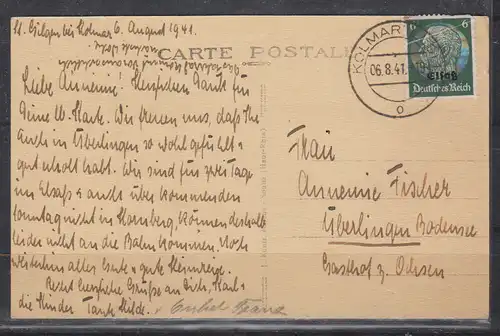 St. Gilgen bei Kolmar 6. August 1941.
CARTE POSTALE
Liebe Annemie! Herzlichen Dank für
Deine l. Karte. Wir freuen uns, daß Ihr
Euch in Überlingen so wohl gefühlt &
gut erholt habt. Wir sind für zwei Tage
im Elsaß & auch über kommenden
Sonntag nicht in Hornberg, können deshalb
leider nicht an die Bahn kommen. Noch
weiterhin alles Gute & gute Heimreise.
Recht herzliche Grüße an Dich, Karl &
die Kinder Tante Hilde. & Onkel Franz
KOLMAR
06.8.41
6
Elsaß
Deutsches Reich
Frau
Annemie Fischer
Überlingen Bodensee
Gasthof z. Ochsen